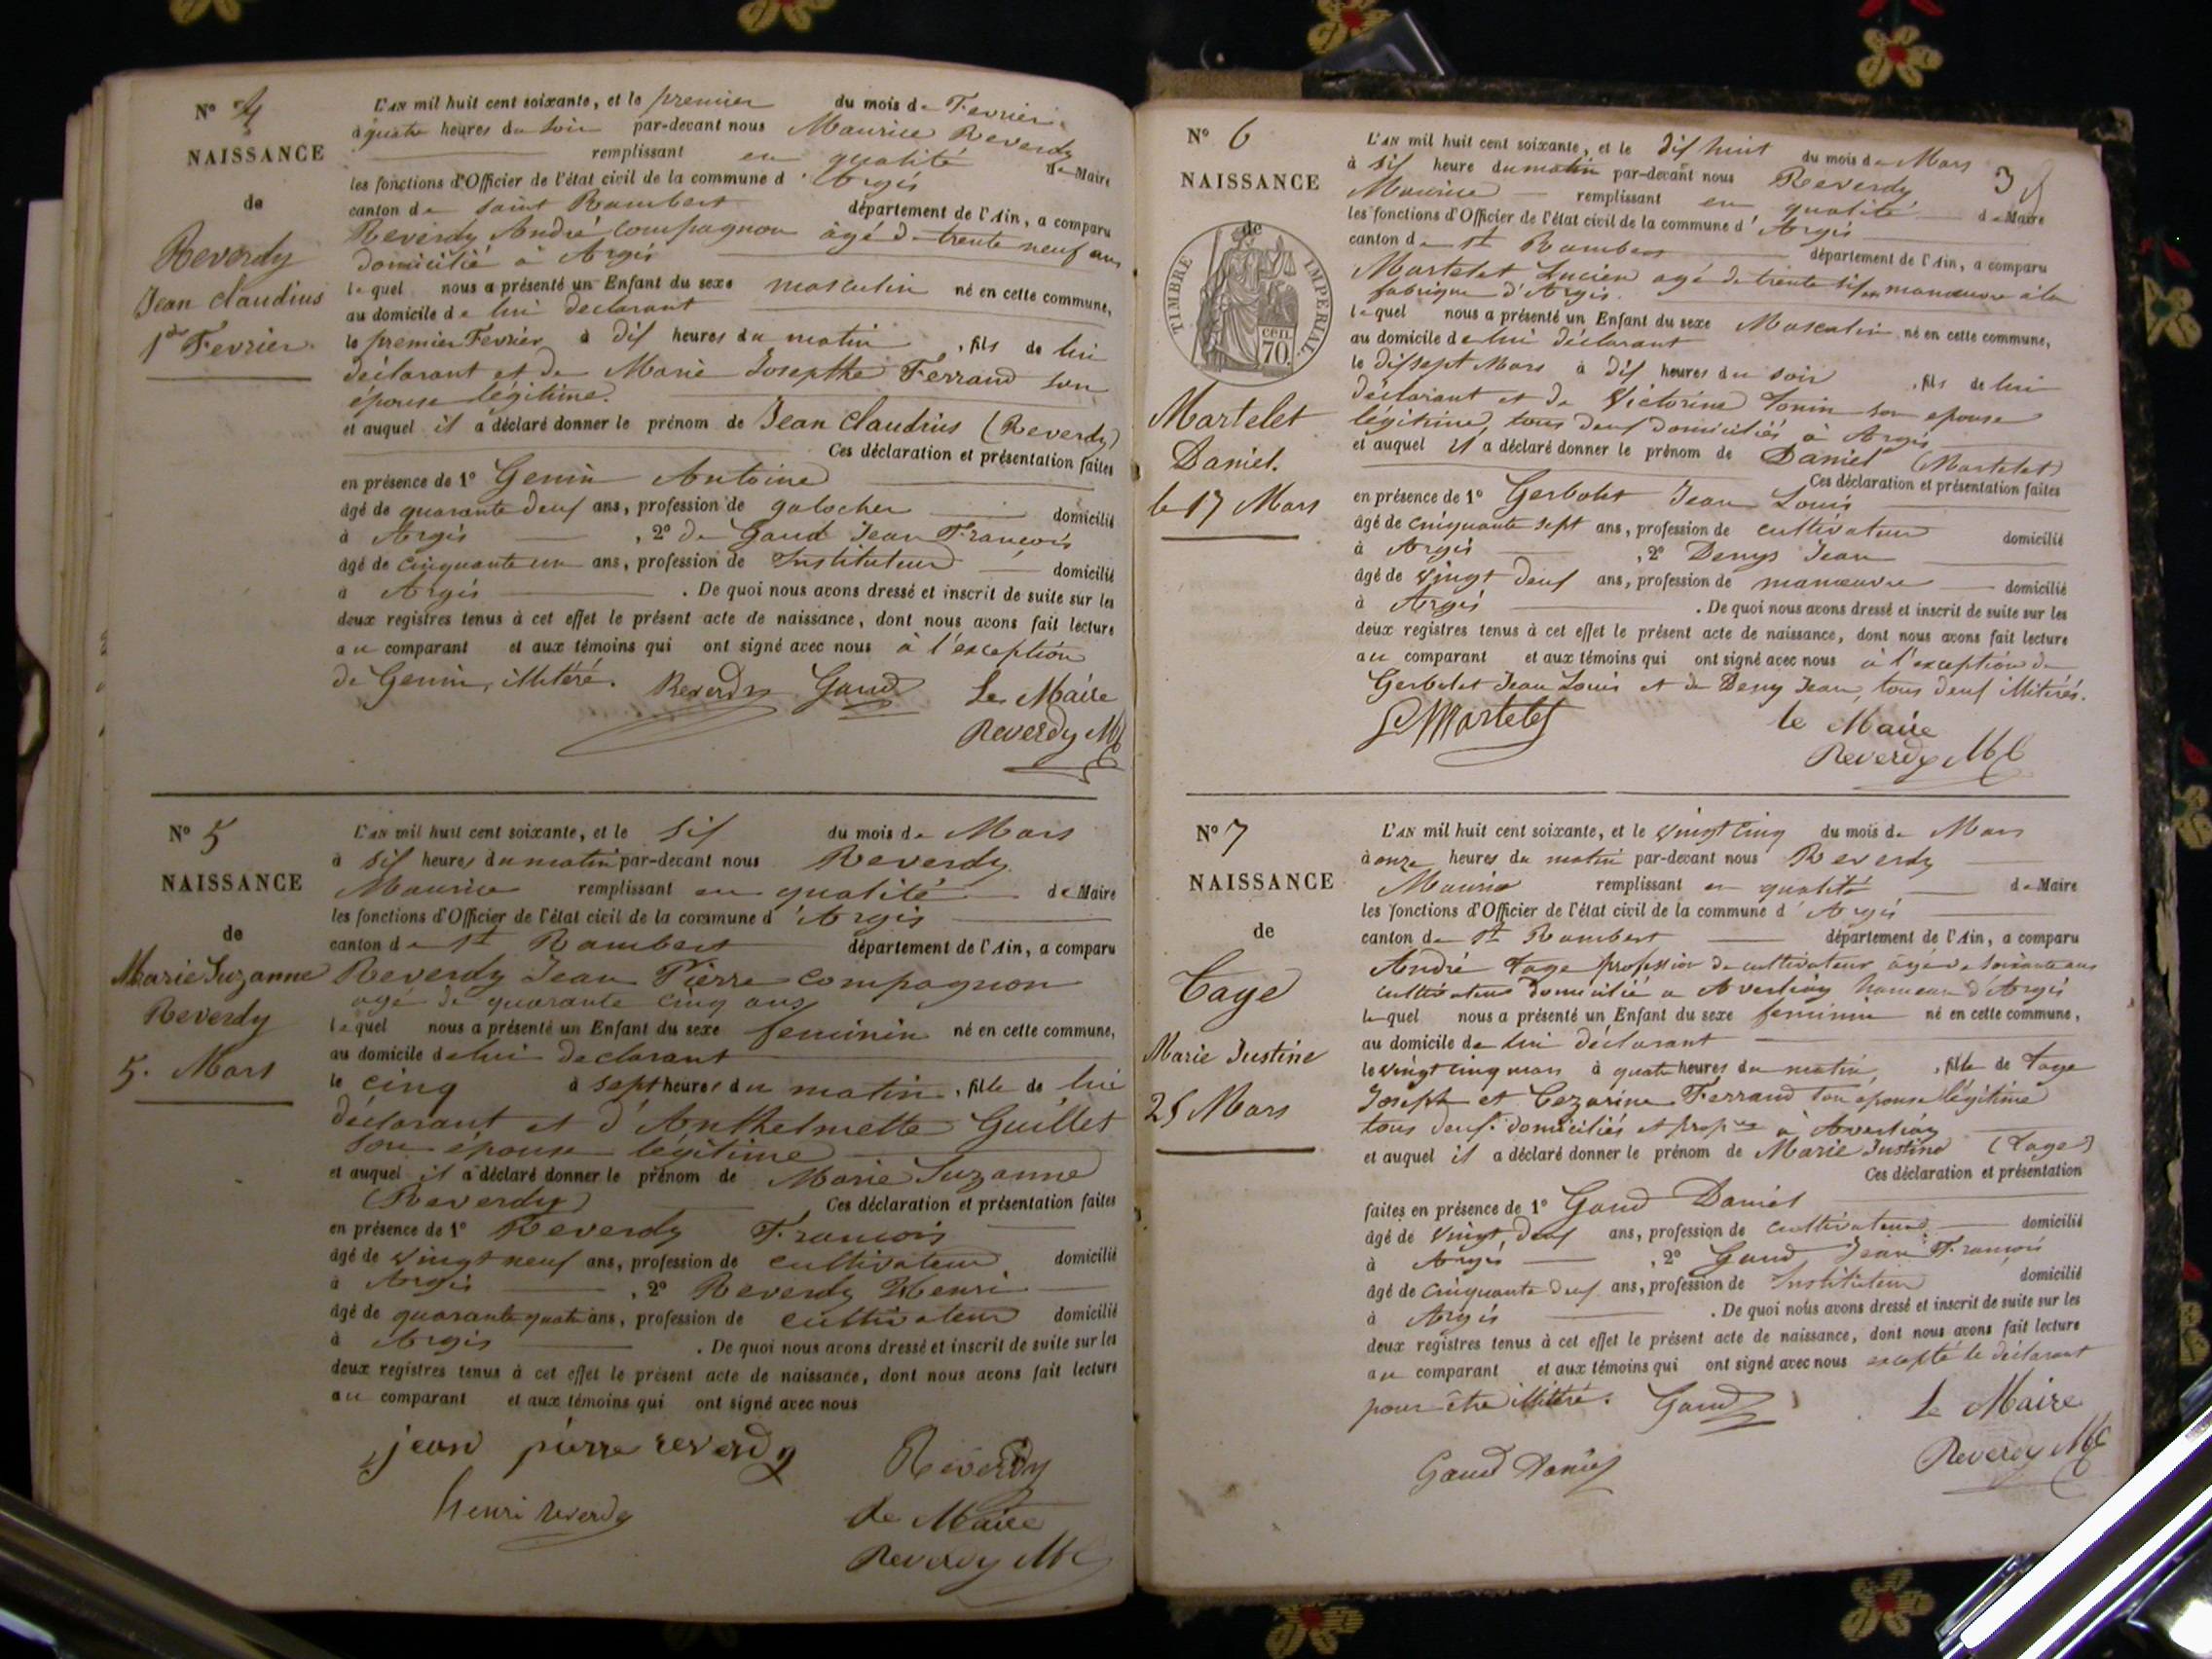 N° 4
NAISSANCE
de
Reverdy
Jean Claudius
1er Fevrier.
L'AN mil huit cent soixante, et le premier du mois de Fevrier.
à quatre heures du soir par-devant nous Maurice Reverdy
remplissant en qualité de Maire
les fonctions d'Officier de l'état civil de la commune d'Argis
canton de Saint Rambert département de l'Ain, a comparu
Reverdy André Compagnon âgé de trente neuf ans
domicilié à Argis
lequel nous a présenté un Enfant du sexe masculin né en cette commune,
au domicile de lui déclarant
le premier Fevrier à dix heures du matin, fils de lui
déclarant et de Marie Josepthe Ferrand son
épouse légitime.
et auquel il a déclaré donner le prénom de Jean Claudius (Reverdy)
Ces déclaration et présentation faites
en présence de 1° Genin Antoine
âgé de quarante deux ans, profession de galocher domicilié
à Argis, 2° de Gaud Jean François
âgé de cinquante un ans, profession de Instituteur domicilié
à Argis. De quoi nous avons dressé et inscrit de suite sur les
deux registres tenus à cet effet le présent acte de naissance, dont nous avons fait lecture
au comparant et aux témoins qui ont signé avec nous à l'exception
de Genin, illitéré. Reverdy Gaud Le Maire
Reverdy M
N° 5
NAISSANCE
de
Marie Suzanne
Reverdy
5. Mars
L'AN mil huit cent soixante, et le six du mois de Mars
à six heures du matin par-devant nous Reverdy
Maurice remplissant en qualité de Maire
les fonctions d'Officier de l'état civil de la commune d'Argis
canton de St Rambert département de l'Ain, a comparu
Reverdy Jean Pierre compagnon
agé de quarante cinq ans
lequel nous a présenté un Enfant du sexe feminin né en cette commune,
au domicile de lui declarant
le cinq à sept heures du matin, fille de lui
déclarant et d'Anthelmette Guillet
son épouse légitime
et auquel il a déclaré donner le prénom de Marie Suzanne
(Reverdy) Ces déclaration et présentation faites
en présence de 1° Reverdy François
âgé de vingt neuf ans, profession de cultivateur domicilié
à Argis, 2° Reverdy Henri
âgé de quarante quatre ans, profession de cultivateur domicilié
à Argis. De quoi nous avons dressé et inscrit de suite sur les
deux registres tenus à cet effet le présent acte de naissance, dont nous avons fait lecture
au comparant et aux témoins qui ont signé avec nous
jean pierre reverdy Reverdy
henri reverdy Le Maire
Reverdy M
3
N° 6
NAISSANCE
de
TIMBRE IMPERIAL.
cen
70.
Martelet
Daniel.
le 17 Mars
L'AN mil huit cent soixante, et le dix huit du mois de Mars
à six heure du matin par-devant nous Reverdy
Maurice remplissant en qualité de Maire
les fonctions d'Officier de l'état civil de la commune d'Argis
canton de St Rambert département de l'Ain, a comparu
Martelet Lucien agé de trente six ans manœuvre à la
fabrique d'Argis.
lequel nous a présenté un Enfant du sexe Masculin né en cette commune,
au domicile de lui déclarant
le dix sept Mars à dix heures du soir, fils de lui
déclarant et de Victorine Tonin son epouse
légitime, tous deux domiciliés à Argis
et auquel il a déclaré donner le prénom de Daniel (Martelet)
Ces déclaration et présentation faites
en présence de 1° Gerbolet Jean Louis
âgé de cinquante sept ans, profession de cultivateur domicilié
à Argis, 2° Denys Jean
âgé de vingt deux ans, profession de manœuvre domicilié
à Argis. De quoi nous avons dressé et inscrit de suite sur les
deux registres tenus à cet effet le présent acte de naissance, dont nous avons fait lecture
au comparant et aux témoins qui ont signé avec nous à l'exception de
Gerbolet Jean Louis et de Deny Jean, tous deux illitérés.
L Martelet le Maire
Reverdy M
N° 7
NAISSANCE
de
Tage
Marie Justine
25 Mars
L'AN mil huit cent soixante, et le vingt cinq du mois de Mars
à onze heures du matin par-devant nous Reverdy
Maurice remplissant en qualité de Maire
les fonctions d'Officier de l'état civil de la commune d'Argis
canton de St Rambert département de l'Ain, a comparu
André Tage profession de cultivateur âgé de soixante ans
cultivateur domicilié a Averliaz hameau d'Argis
lequel nous a présenté un Enfant du sexe feminin né en cette commune,
au domicile de lui déclarant
le vingt cinq mars à quatre heures du matin, fille de Tage
Joseph et Cezarine Ferrand son epouse légitime
tous deux domiciliés et propres à Averliaz
et auquel il a déclaré donner le prénom de Marie Justine (Tage)
Ces déclaration et présentation
faites en présence de 1° Gaud Daniel
âgé de vingt deux ans, profession de cultivateur domicilié
à Argis, 2° Gaud Jean François
âgé de cinquante deux ans, profession de Instituteur domicilié
à Argis. De quoi nous avons dressé et inscrit de suite sur les
deux registres tenus à cet effet le présent acte de naissance, dont nous avons fait lecture
au comparant et aux témoins qui ont signé avec nous excepté le déclarant
pour être illitéré. Gaud Le Maire
Gaud Daniel Reverdy M